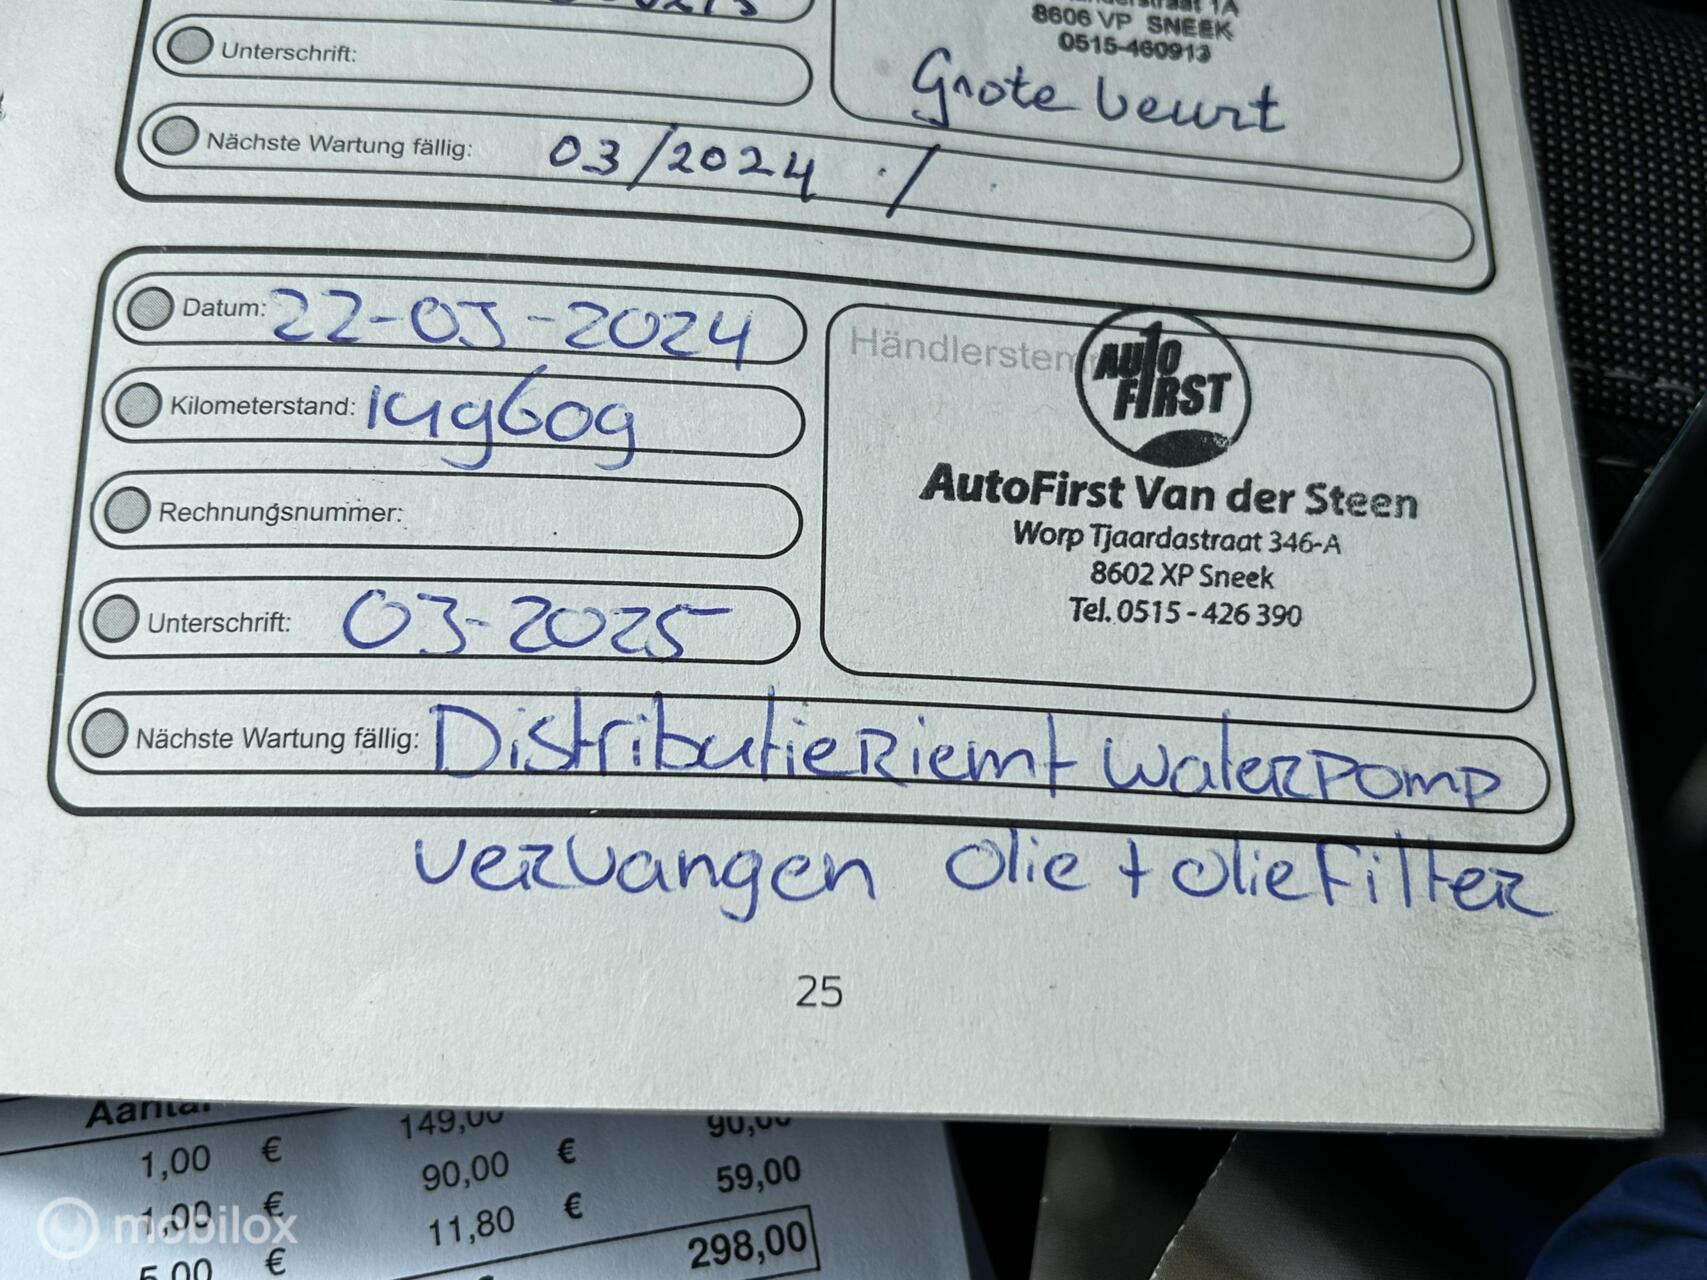 8606 VP SNEEK
0515-460913
Unterschrift:
Grote beurt
Nächste Wartung fällig: 03/2024 /
Datum: 22-03-2024
Kilometerstand: 149609
Rechnungsnummer:
Unterschrift: 03-2025
Nächste Wartung fällig: Distributieriem + waterpomp
vervangen olie + oliefilter
AUTO
FIRST
AutoFirst Van der Steen
Worp Tjaardastraat 346-A
8602 XP Sneek
Tel. 0515 - 426 390
25
Aantal
149,00 90,00
1,00 € 90,00 € 59,00
1,00 € 11,80 € 298,00
5,00 €
mobilox